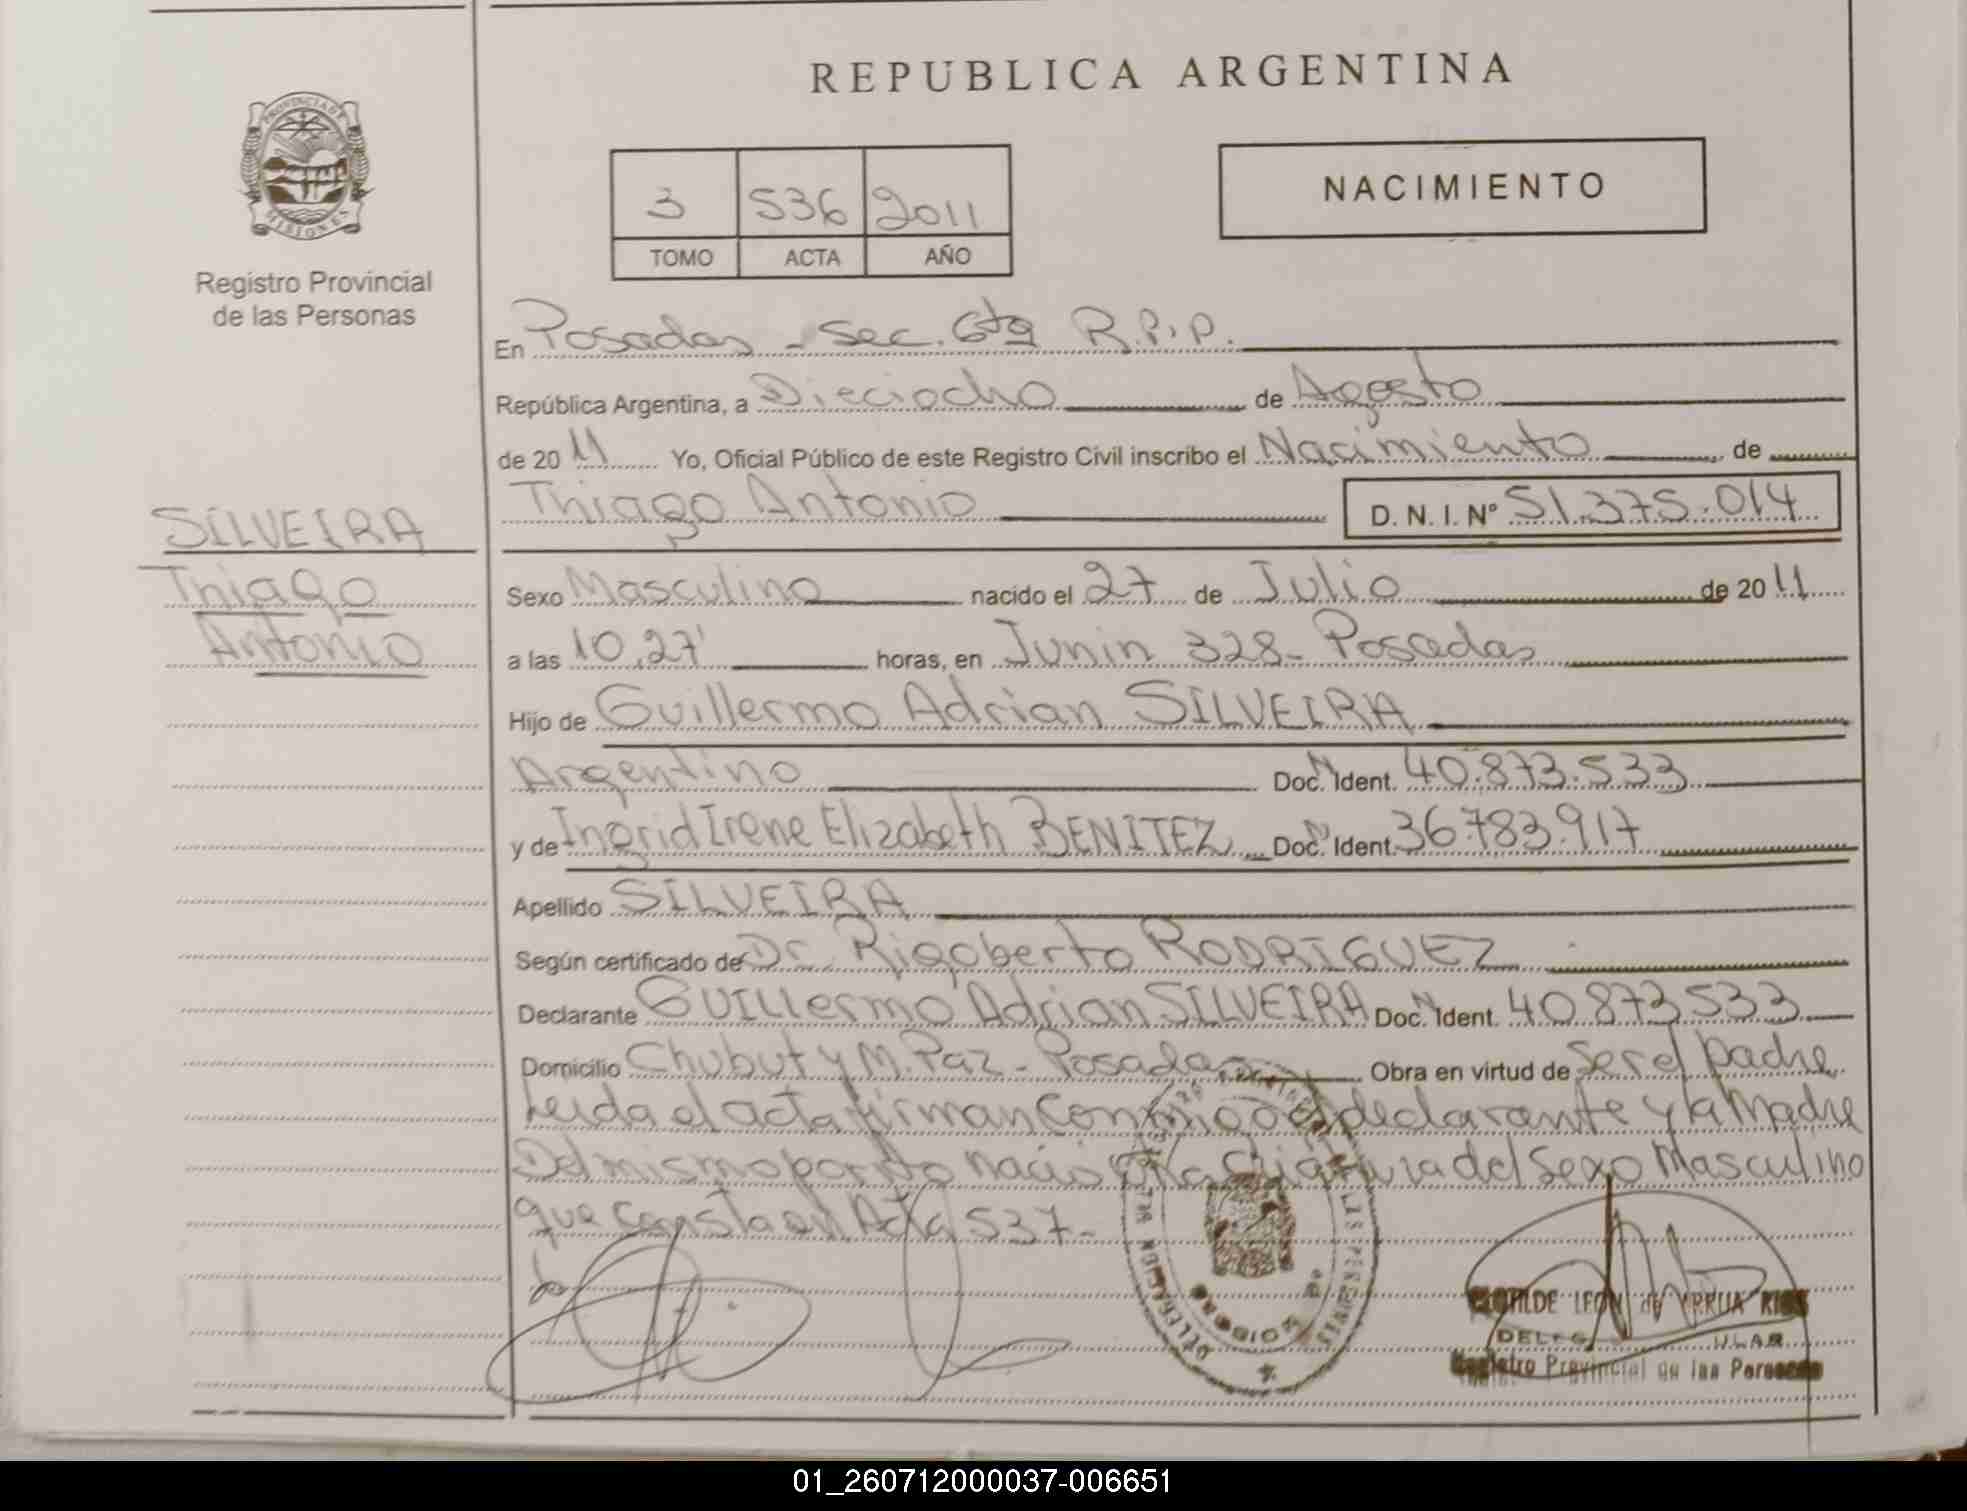 REPUBLICA ARGENTINA
PROVINCIA DE
MISIONES
Registro Provincial
de las Personas
3 536 2011
TOMO ACTA AÑO
NACIMIENTO
En Posadas - Sec. 6ta R.P.P.
República Argentina, a Dieciocho de Agosto
de 2011 Yo, Oficial Público de este Registro Civil inscribo el Nacimiento, de
Thiago Antonio D. N. I. Nº 51.375.014
SILVEIRA
Thiago
Antonio
Sexo Masculino nacido el 27 de Julio de 2011
a las 10,27' horas, en Junin 328- Posadas
Hijo de Guillermo Adrian SILVEIRA
Argentino Doc. N Ident. 40.873.533
y de Ingrid Irene Elizabeth BENITEZ Doc. N Ident. 36.783.917
Apellido SILVEIRA
Según certificado de Dr. Rigoberto RODRIGUEZ
Declarante GUILLermo Adrian SILVEIRA Doc. N Ident. 40.873.533
Domicilio Chubut y M. Paz - Posadas Obra en virtud de Ser el padre
Leida el acta firman conmigo el declarante y la Madre
Del mismo parto nacio otra Criatura del Sexo Masculino
que consta en Acta 537-
DELEGACION
LAS PERSONAS
CLOTILDE LEON de ARRUA RIOS
Registro Provincial de las Personas
01_260712000037-006651